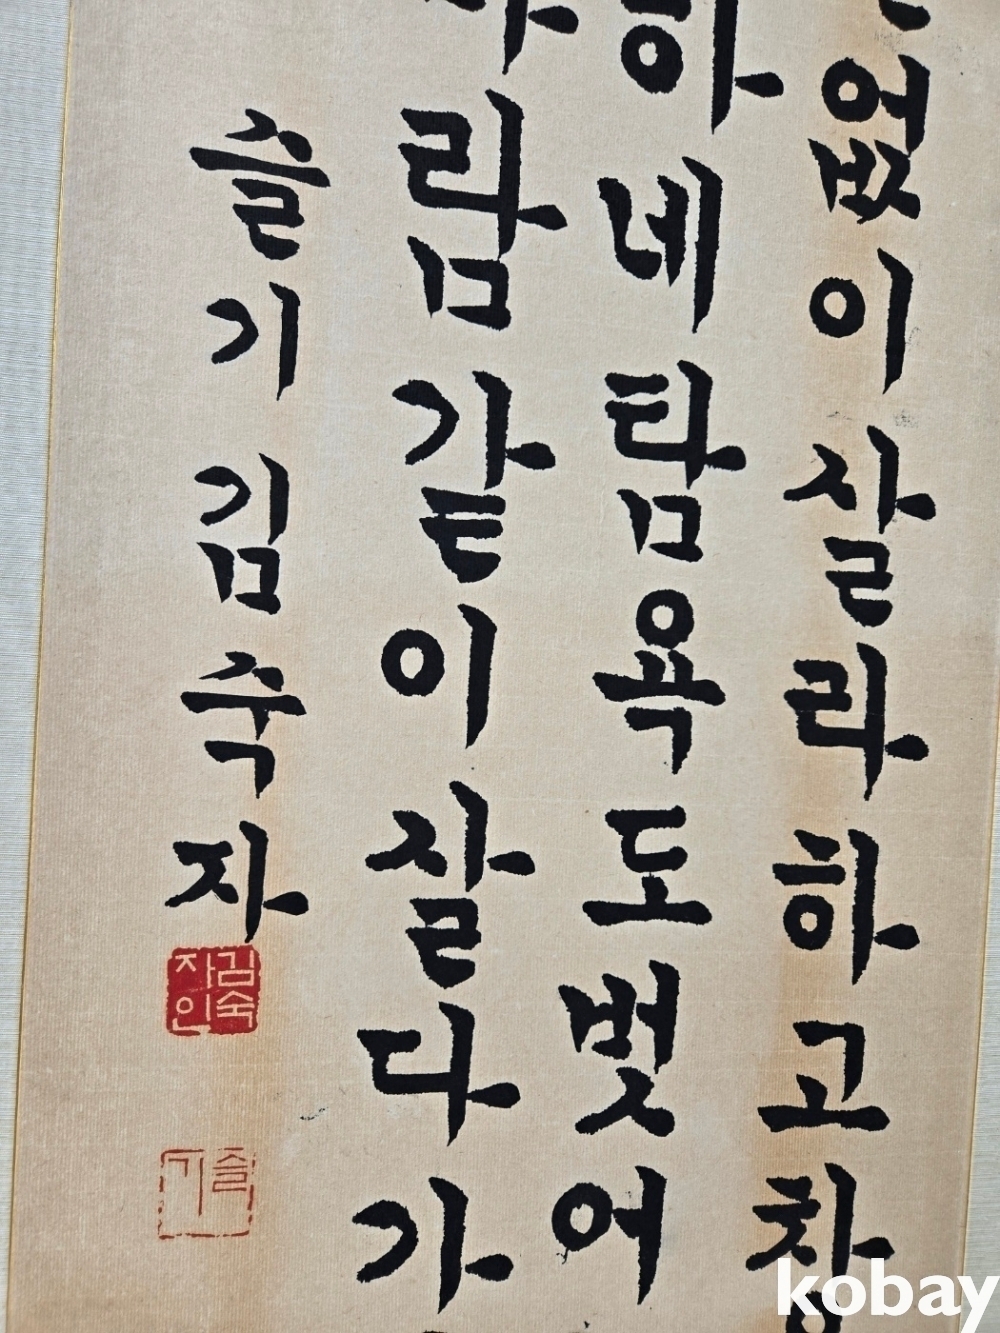 없이 살라하고 창
하네 탐욕도 벗어
람같이 살다가
슬기 김숙자
김숙자인
슬기
kobay